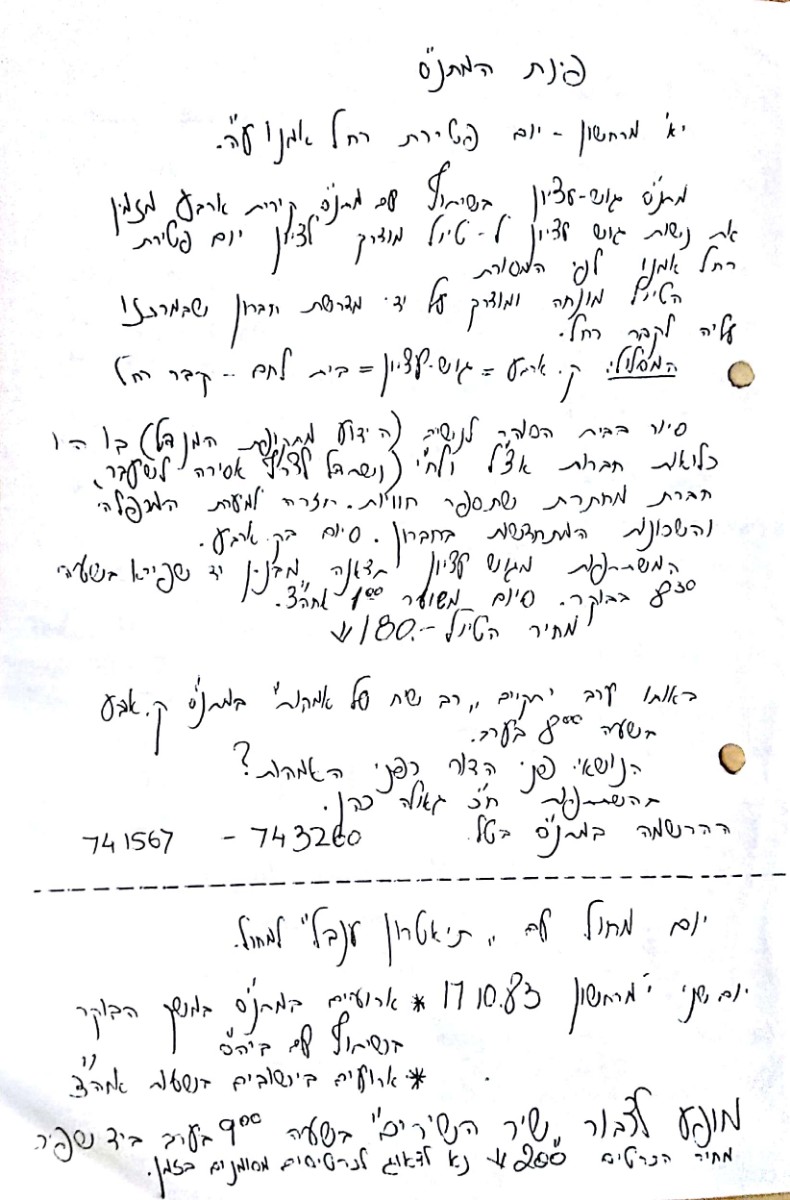 פינת המתנ"ס
יא' מרחשון - יום פטירת רחל אמנו ע"ה.
מתנ"ס גוש-עציון בשיתוף עם מתנ"ס קירית ארבע מזמין
את נשות גוש עציון ל-טיול מודרך לציון יום פטירת
רחל אמנו לפי המסורת
הטיול מונחה ומודרך על ידי מדרשת חברון שבמרכזו
עליה לקבר רחל.
המסלול: ק. ארבע = גוש-עציון = בית לחם -- קבר רחל
סיור בבית הסוהר לנשים (הידוע מתקופת המנדט) בו היו
כלואות חברות אצ"ל ולח"י (ונשתדל לצרף אסירה לשעבר,
חברת מחתרת שתספר חוויות. חזרה למערת המכפלה
והשכונות המתחדשות בחברון. סיום בק. ארבע.
המשתתפות מגוש עציון תצאנה מבנין יד שפירא בשעה
8³⁰ בבוקר. סיום משוער 1⁰⁰ אחה"צ.
מחיר הטיול -.180
באותו ערב יתקיים ,,רב שיח של אמהות" במתנ"ס ק. ארבע
בשעה 8⁰⁰ בערב.
הנושא: פני הדור כפני האמהות?
בהשתתפות ח"כ גאולה כהן.
ההרשמה במתנ"ס בטל. 743260 - 741567
יום מחול לה ,, תיאטרון ענבל" למחול.
יום שני י' מרחשון 17.10.83 * ארועים במתנ"ס במשך הבוקר
בשיתוף עם ביה"ס
* ארועים בישובים בשעות אחה"צ
מופע לצבור ,,שיר השירים" בשעה 9⁰⁰ בערב ביד שפירא
מחיר הכרטיס 200 נא לדאוג לכרטיסים מסומנים בזמן.